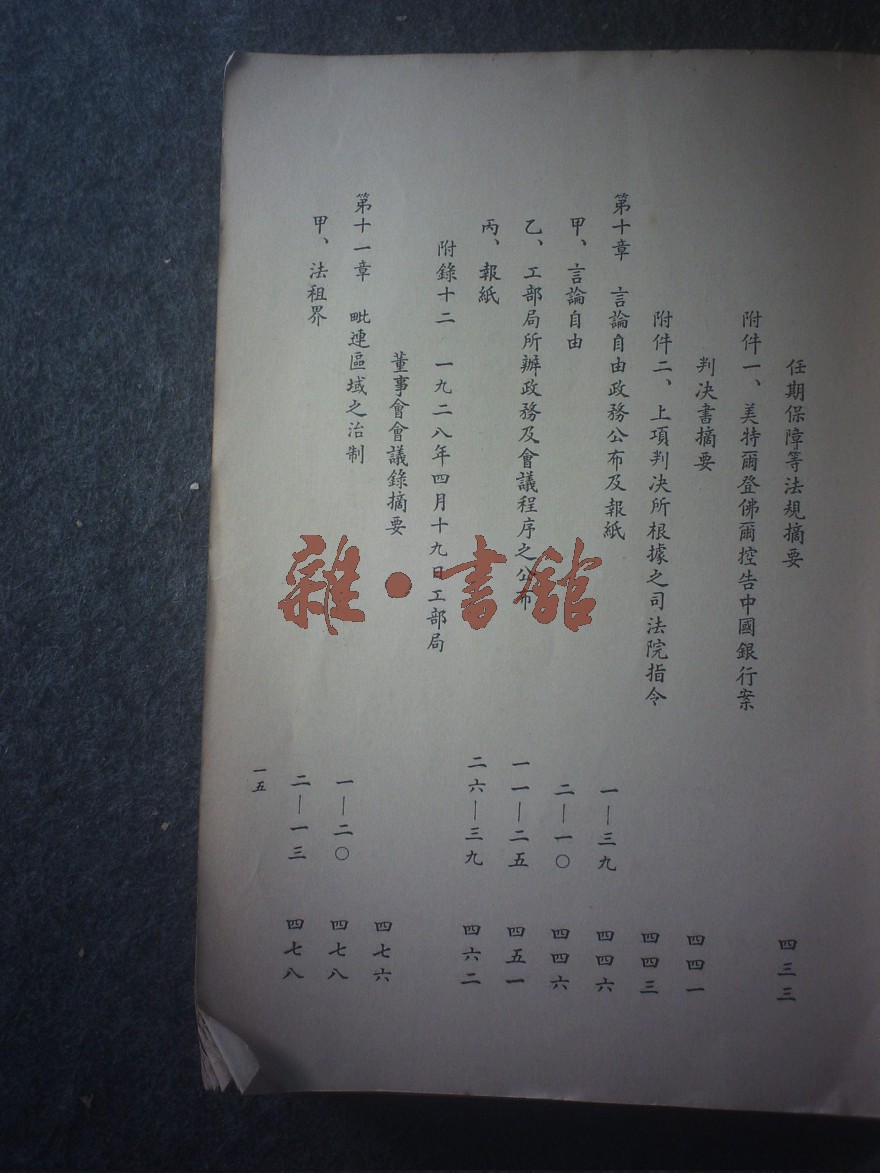 任期保障等法規摘要 四三三
附件一、美特爾登佛爾控告中國銀行案
判决書摘要 四四一
附件二、上項判决所根據之司法院指令 四四三
第十章 言論自由政務公布及報紙 一—三九 四四六
甲、言論自由 二—一〇 四四六
乙、工部局所辦政務及會議程序之公布 一一—二五 四五一
丙、報紙 二六—三九 四六二
附錄十二 一九二八年四月十九日工部局
董事會會議錄摘要 四七六
第十一章 毗連區域之治制 一—二〇 四七八
甲、法租界 二—一三 四七八
一五
雜·書館